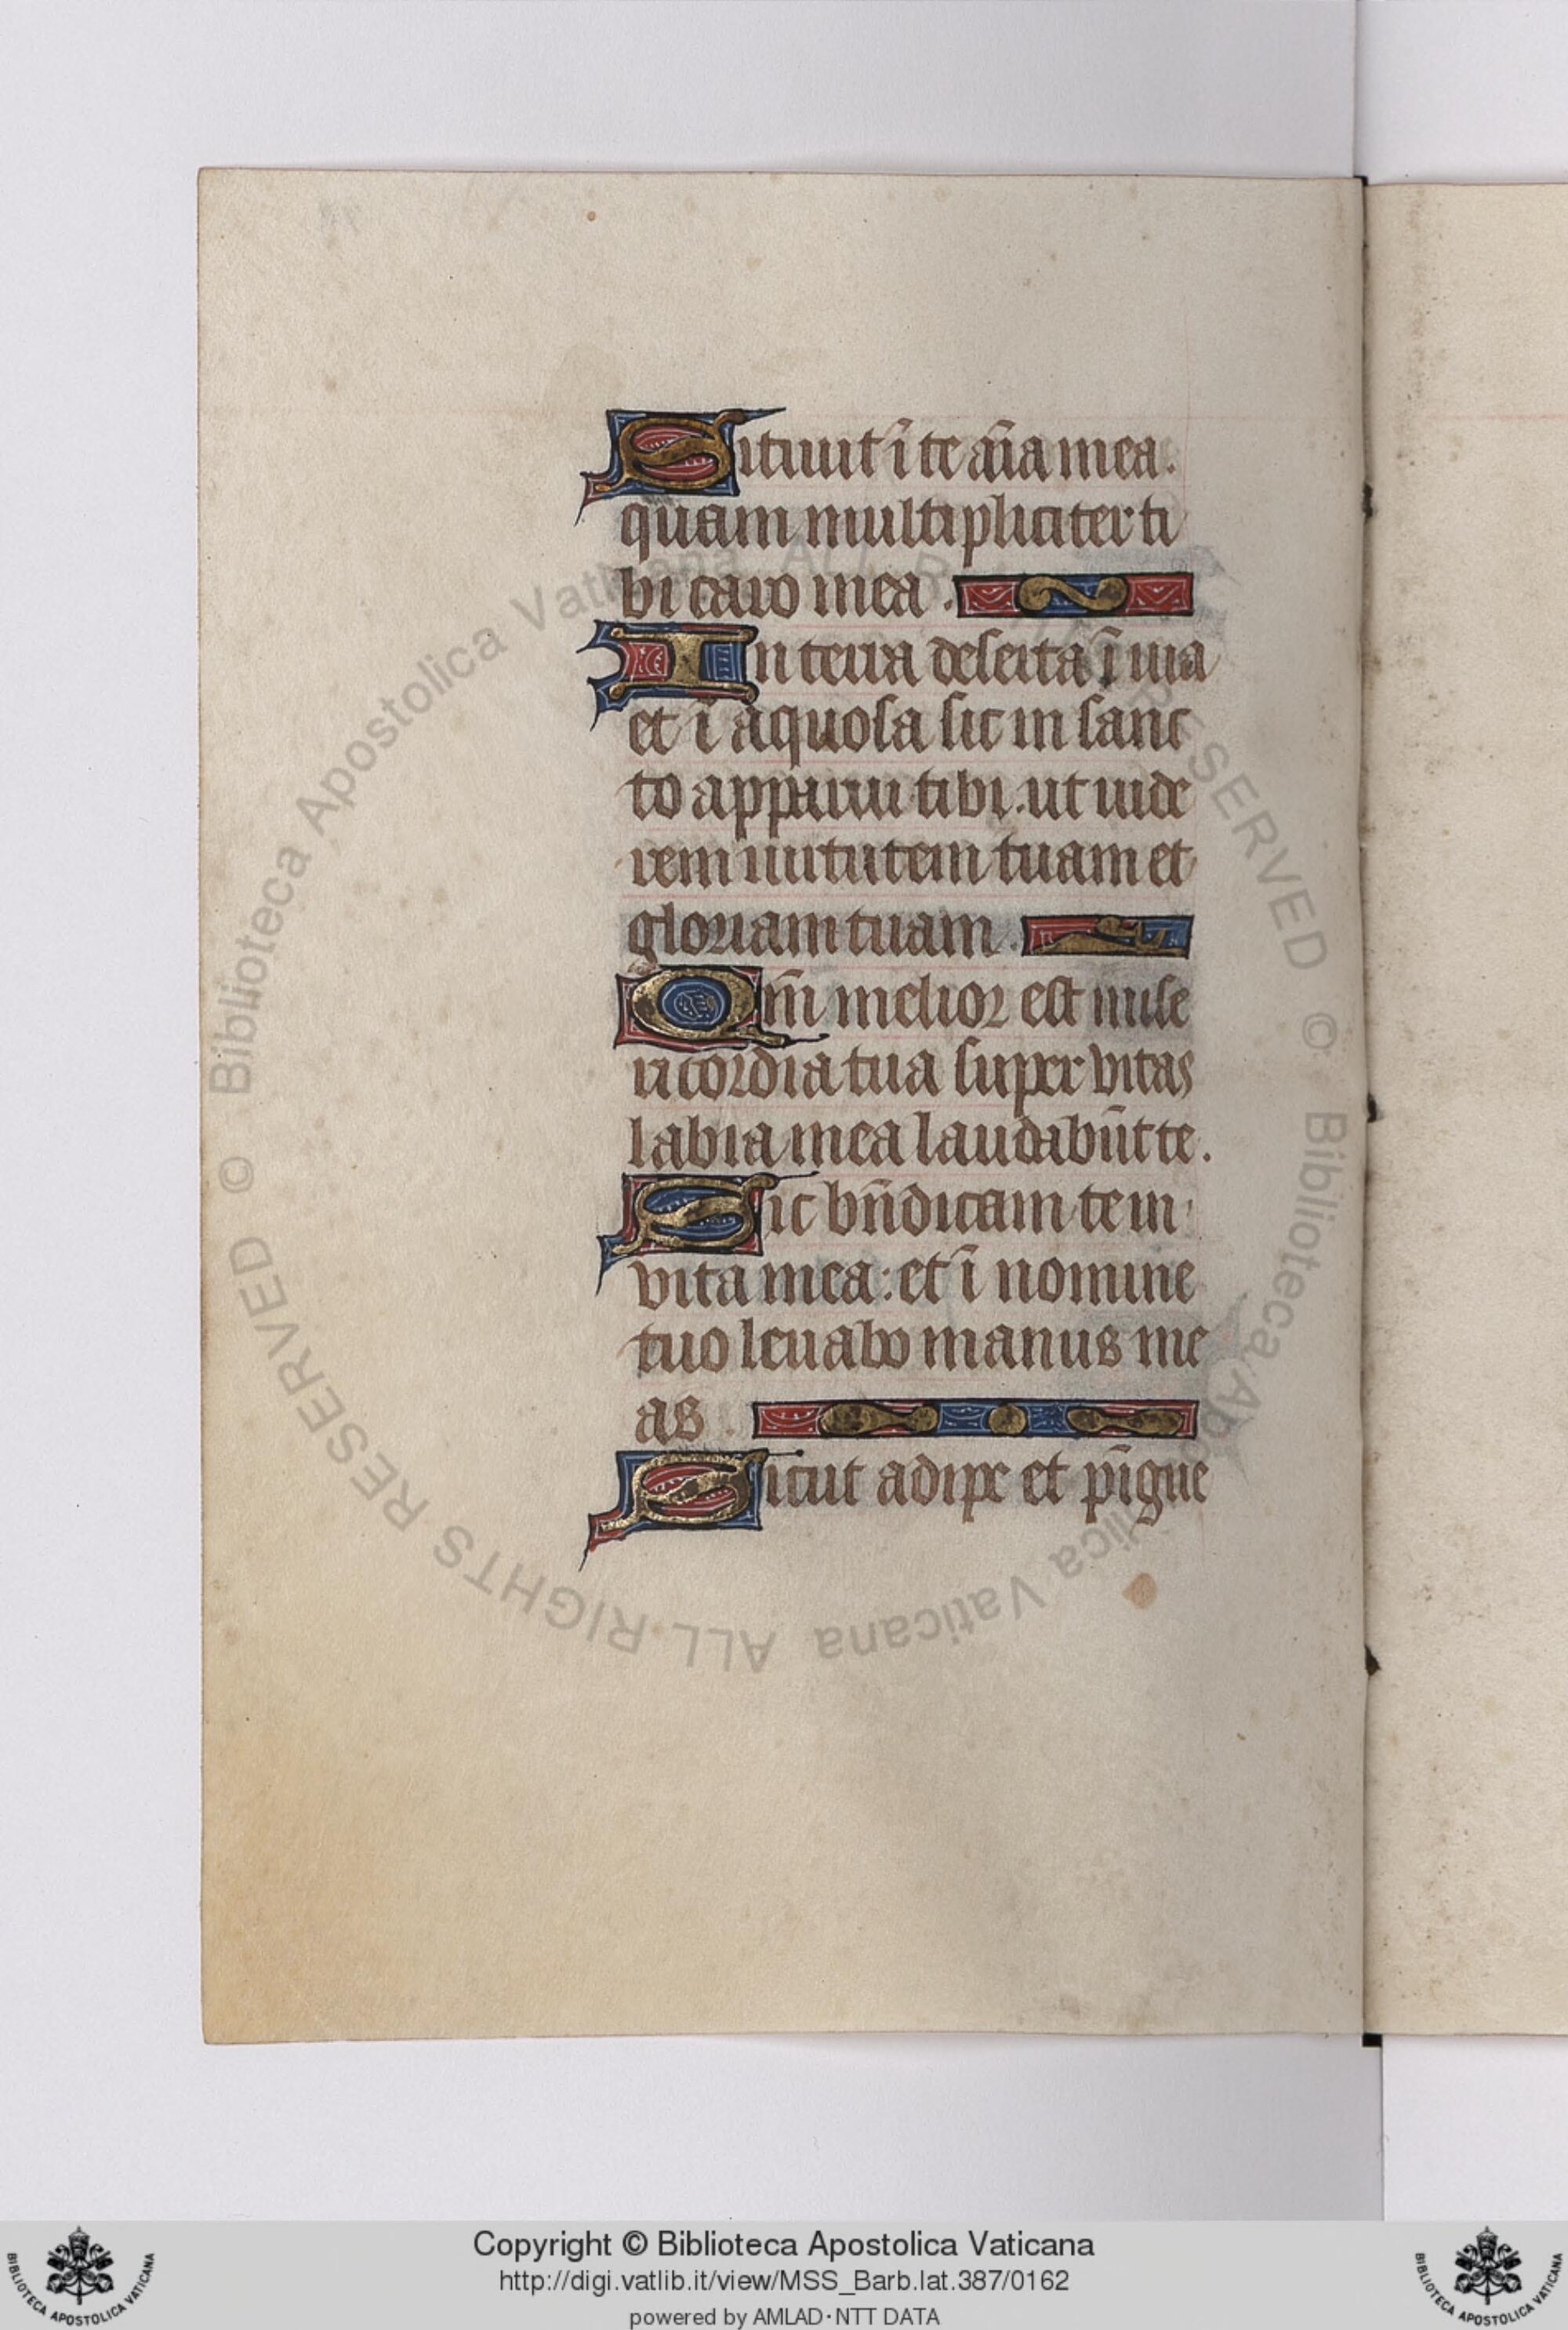 Sitiuit ī te aīa mea.
quam multipliciter ti
bi caro mea .
In terra deserta ī uia
et ī aquosa sic in sanc
to apparui tibi . ut uide
rem uirtutem tuam et
gloriam tuam .
Qm̄ melior est mise
ricordia tua super vitas
labia mea laudabūt te .
Sic bn̄dicam te in
vita mea : et ī nomine
tuo leuabo manus me
as .
Sicut adipe et pīgue
© Biblioteca Apostolica Vaticana ALL RIGHTS RESERVED © Biblioteca Apostolica Vaticana ALL RIGHTS RESERVED
Copyright © Biblioteca Apostolica Vaticana
http://digi.vatlib.it/view/MSS_Barb.lat.387/0162
powered by AMLAD·NTT DATA
BIBLIOTECA APOSTOLICA VATICANA
BIBLIOTECA APOSTOLICA VATICANA